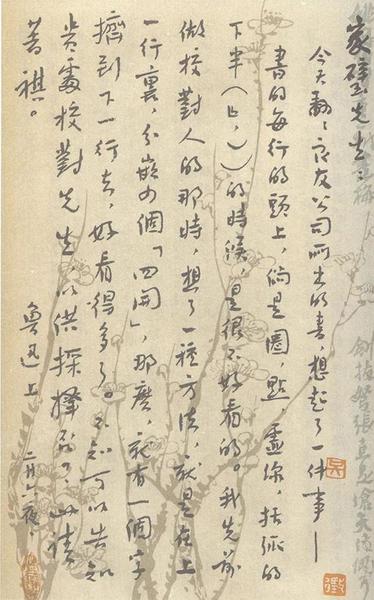 家璧先生：
今天翻〻良友公司所出的書，想起了一件事——
書的每行的頭上，倘是圈，點，虛線，括弧的
下半（﹂，））的時候，是很不好看的。我先前
做校對人的那時，想了一種方法，就是在上
一行裏，分嵌四個「四開」，那麼，就有一個字
擠到下一行去，好看得多了。不知可以告知
貴處校對先生以供採擇否？此請
著祺。
魯迅上 二月六夜。